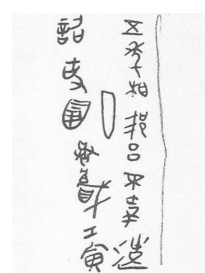 五年相邦呂不韋造
詔事圖丞工寅